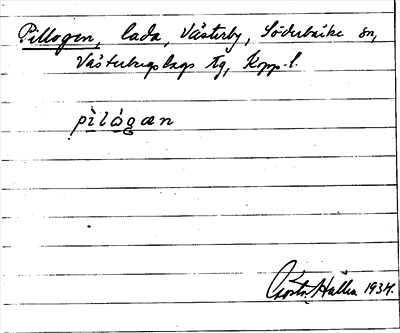 Pillogen, lada, Västerby, Söderbärke sn,
Västerbergslags tg, Kopp. l.
pilógæn
Gösta Hallén 1934.